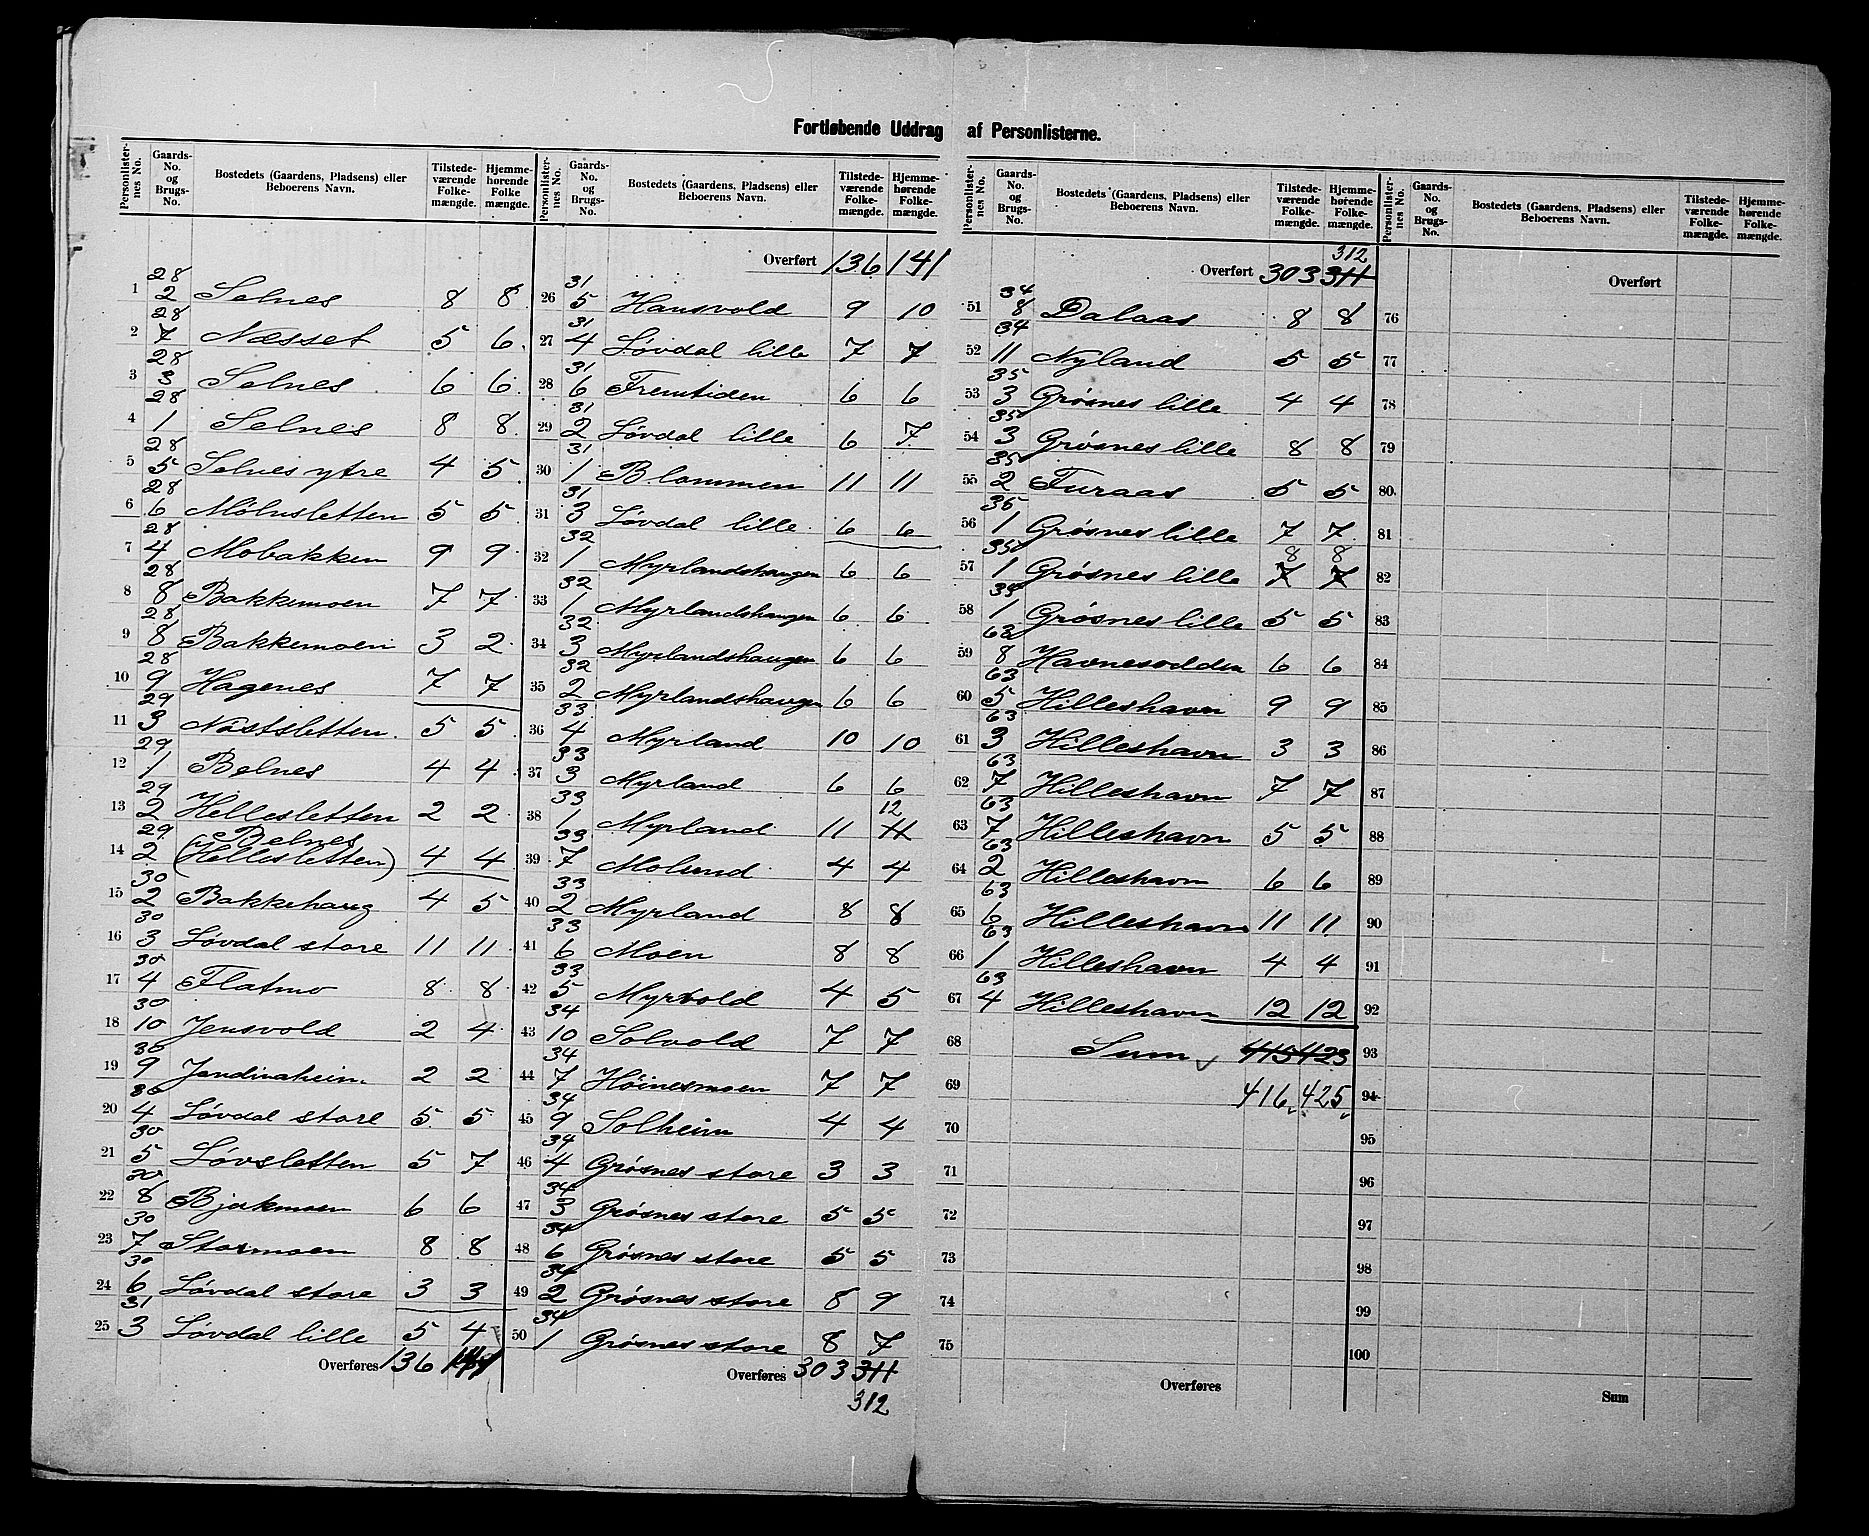 Fortløbende Uddrag af Personlisterne.
Personlister-nes No. | Gaards-No. og Brugs-No. | Bostedets (Gaardens, Pladsens) eller Beboerens Navn. | Tilstede-værende Folke-mængde. | Hjemme-hørende Folke mængde.
1 | 28/2 | Selnes | 8 | 8
2 | 28/7 | Næsset | 5 | 6
3 | 28/3 | Selnes | 6 | 6
4 | 28/1 | Selnes | 8 | 8
5 | 28/5 | Selnes ytre | 4 | 5
6 | 28/6 | Mølnsletten | 5 | 5
7 | 28/4 | Mobakken | 9 | 9
8 | 28/8 | Bakkemoen | 7 | 7
9 | 28/8 | Bakkemoen | 3 | 2
10 | 28/9 | Hagenes | 7 | 7
11 | 29/3 | Nastsletten | 5 | 5
12 | 29/1 | Belnes | 4 | 4
13 | 29/2 | Hellesletten | 2 | 2
14 | 29/2 | Belnes (Hellesletten) | 4 | 4
15 | 30/2 | Bakkehaug | 4 | 5
16 | 30/3 | Løvdal store | 11 | 11
17 | 30/4 | Flatmo | 8 | 8
18 | 30/10 | Jensvold | 2 | 4
19 | 30/9 | Jandivaheim | 2 | 2
20 | 30/4 | Løvdal store | 5 | 5
21 | 30/5 | Løvsletten | 5 | 7
22 | 30/8 | Bjørkmoen | 6 | 6
23 | 30/7 | Stormoen | 8 | 8
24 | 30/6 | Løvdal store | 3 | 3
25 | 31/3 | Løvdal lille | 5 | 4
Overføres 136 141
Personlister-nes No. | Gaards-No. og Brugs-No. | Bostedets (Gaardens, Pladsens) eller Beboerens Navn. | Tilstede-værende Folke-mængde. | Hjemme-hørende Folke-mængde.
Overført 136 141
26 | 31/5 | Hansvold | 9 | 10
27 | 31/4 | Løvdal lille | 7 | 7
28 | 31/6 | Fremtiden | 6 | 6
29 | 31/2 | Løvdal lille | 6 | 7
30 | 31/1 | Blommen | 11 | 11
31 | 31/3 | Løvdal lille | 6 | 6
32 | 32/1 | Myrlandshaugen | 6 | 6
33 | 32/1 | Myrlandshaugen | 6 | 6
34 | 32/3 | Myrlandshaugen | 6 | 6
35 | 32/2 | Myrlandshaugen | 6 | 6
36 | 33/4 | Myrland | 10 | 10
37 | 33/3 | Myrland | 6 | 6
38 | 33/1 | Myrland | 11 | 11 12
39 | 33/7 | Molund | 4 | 4
40 | 33/2 | Myrland | 8 | 8
41 | 33/6 | Moen | 8 | 8
42 | 33/5 | Myrvold | 4 | 5
43 | 34/10 | Solvold | 7 | 7
44 | 34/7 | Høinesmoen | 7 | 7
45 | 34/9 | Solheim | 4 | 4
46 | 34/4 | Grøsnes store | 3 | 3
47 | 34/3 | Grøsnes store | 5 | 5
48 | 34/6 | Grøsnes store | 5 | 5
49 | 34/2 | Grøsnes store | 8 | 9
50 | 34/1 | Grøsnes store | 8 | 7
Overføres 303 311
312
Personlister-nes No. | Gaards-No. og Brugs-No. | Bostedets (Gaardens, Pladsens) eller Beboerens Navn. | Tilstede-værende Folke-mængde. | Hjemme-hørende Folke-mængde.
312
Overført 303 311
51 | 34/8 | Dalaas | 8 | 8
52 | 34/11 | Nyland | 5 | 5
53 | 35/3 | Grøsnes lille | 4 | 4
54 | 35/3 | Grøsnes lille | 8 | 8
55 | 35/2 | Furaas | 5 | 5
56 | 35/1 | Grøsnes lille | 7 | 7
57 | 35/1 | Grøsnes lille | 7 8 | 7 8
58 | 35/1 | Grøsnes lille | 5 | 5
59 | 63/8 | Havnesodden | 6 | 6
60 | 63/5 | Hilleshavn | 9 | 9
61 | 63/3 | Hilleshavn | 3 | 3
62 | 63/7 | Hilleshavn | 7 | 7
63 | 63/7 | Hilleshavn | 5 | 5
64 | 63/2 | Hilleshavn | 6 | 6
65 | 63/6 | Hilleshavn | 11 | 11
66 | 63/1 | Hilleshavn | 4 | 4
67 | 63/4 | Hilleshavn | 12 | 12
68 | Sum | 415 | 423
69 | 416 | 425
70
71
72
73
74
75
Overføres
Personlister-nes No. | Gaards-No. og Brugs-No. | Bostedets (Gaardens, Pladsens) eller Beboerens Navn. | Tilstede-værende Folke-mængde. | Hjemme-hørende Folke-mængde.
Overført
76
77
78
79
80
81
82
83
84
85
86
87
88
89
90
91
92
93
94
95
96
97
98
99
100
Sum